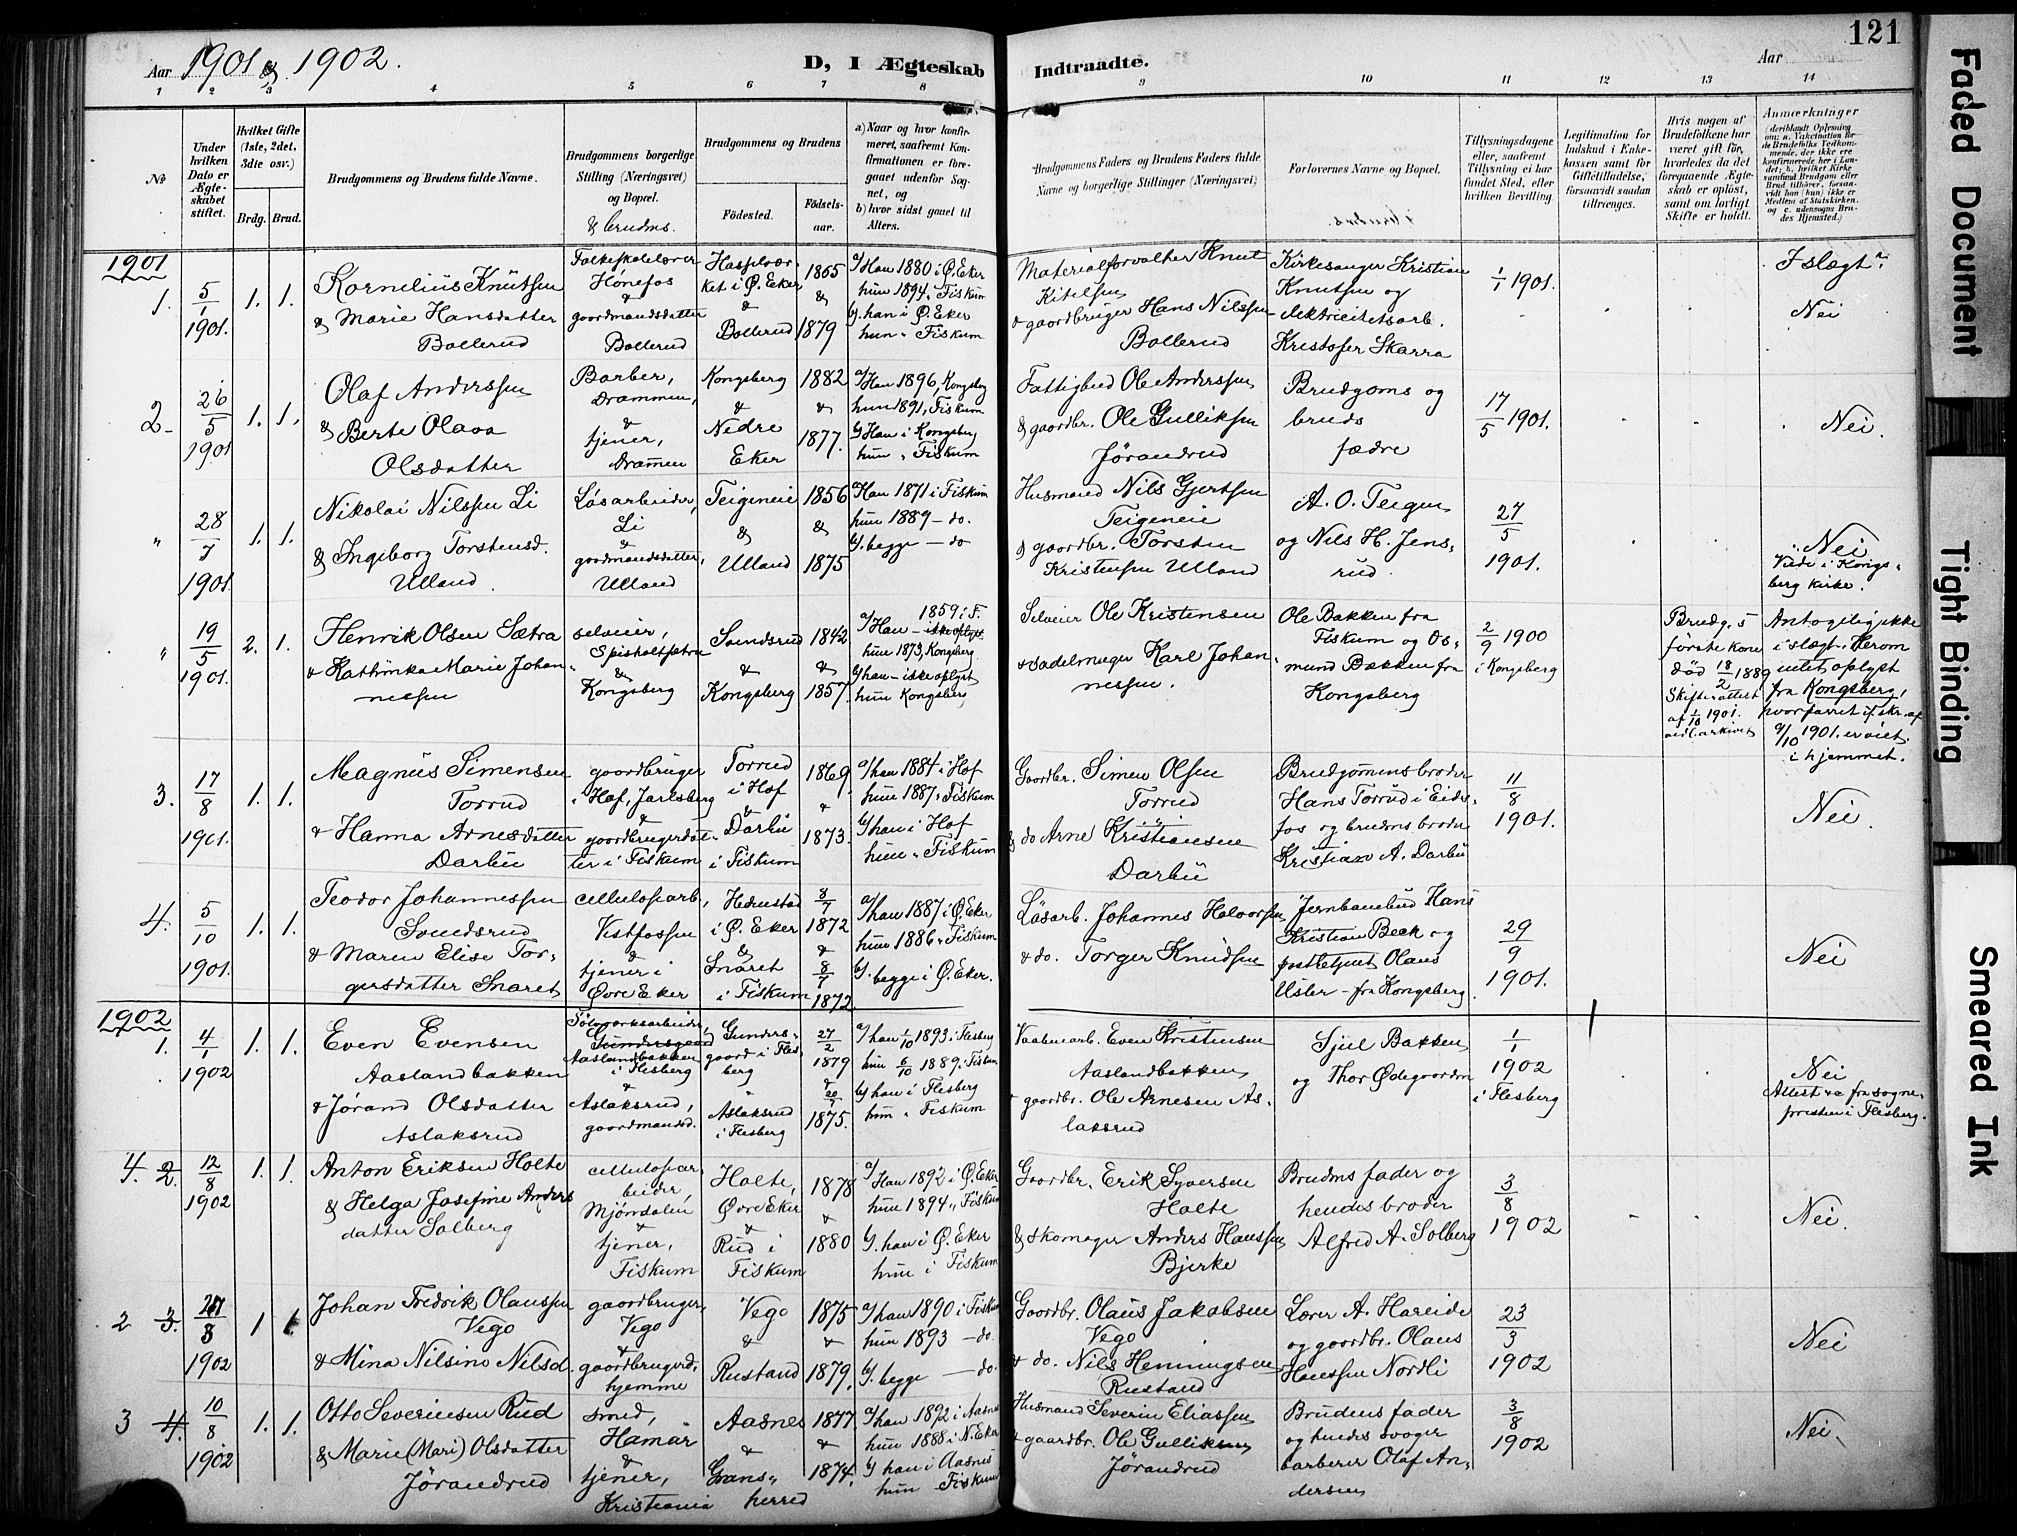 121
Aar 1901 & 1902.
D, I Ægteskab Indtraadte.
Aar
1 2 3 4 5 6 7 8 9 10 11 12 13 14
No
Under hvilken Dato er Ægteskabet stiftet.
Hvilket Gifte (1ste, 2det, 3dte osv.)
Brdg. Brud.
Brudgommens og Brudens fulde Navne.
Brudgommens borgerlige Stilling (Næringsvei) og Bopæl.
& brudens.
Brudgommens og Brudens
Födested. Födselsaar.
a) Naar og hvor konfirmeret, saafremt Konfirmationen er foregaaet udenfor Sognet, og
b) hvor sidst gaaet til Alters.
Brudgommens Faders og Brudens Faders fulde Navne og borgerlige Stillinger (Næringsvei)
Forlovernes Navne og Bopæl.
Tillysningsdagene eller, saafremt Tillysning ei har fundet Sted, efter hvilken Bevilling.
Legitimation for Indskud i Enkekassen samt for Giftetilladelse, forsaavidt saadan tiltrænges.
Hvis nogen af Brudefolkene har været gift för, hvorledes da det foregaaende Ægteskab er oplöst, samt om lovligt Skifte er holdt.
Anmærkninger
1901
1. 5/1 1901. 1. 1.
Kornelius Knutsen
& Marie Hansdatter
Bollerud
Folkeskolelærer
Hönefos
&
gaardmandsdatter
Bollerud
Hasselvær
ket i Ø. Eker
&
Bollerud
1865
&
1879
a/ Han 1880 i Ø. Eker
hun 1894 " Fiskum
b/ han i Ø. Eker
hun " Fiskum
Materialforvalter Knut
Kitelsen
& gaardbruger Hans Nilssen
Bollerud
Kirkesanger Kristian
Knutsen og
elektricitetsarb.
Kristofer Skarra
1/1 1901.
I slægt?
Nei
2 26/5 1901 1. 1.
Olaf Anderssen
& Berte Olava
Olsdatter
Barber,
Drammen,
&
tjener,
Drammen
Kongsberg
&
Nedre
Eker
1882
&
1877.
a/ Han 1896, Kongsberg
hun 1891, Fiskum
b/ Han i Kongsberg
hun " Fiskum
Fattigbud Ole Anderssen
& gaardbr. Ole Gulliksen
Jörandrud
Brudgoms og
bruds
fædre
17/5 1901.
Nei.
" 28/7 1901. 1. 1.
Nikolai Nilssen Li
& Ingeborg Torstensd.
Ulland
Lösarbeider,
Li
&
gaardmandsdatter,
Ulland
Teigeneie
&
Ulland
1856
&
1875
a/ Han 1871 i Fiskum
hun 1889 – do.
b/ begge – do
Husmand Nils Gjertsen
Teigeneie
& gaardbr. Torsten
Kristensen Ulland
A. O. Teigen
og Nils H. Jens-
rud.
27/5
1901.
Nei
Viede i Kongs-
berg kirke.
" 19/5 1901. 2. 1.
Henrik Olsen Sætra
& Kathinka Marie Johan
nessen
selveier,
Spisholtsætra
&
Kongsberg
Somdsrud
&
Kongsberg
1842
&
1857.
1859 i F.
a/ Han – ikke oplyst.
hun 1873, Kongsberg
b/ han – ikke oplyst
hun Kongsberg
Selveier Ole Kristensen
& sadelmager Karl Johan
nessen.
Ole Bakken fra
Fiskum og Os-
mund Bakken fra
Kongsberg
2/9 1900
i Kongsberg
Brudg.s
förste kone
död 18/2 1889
Skifteattest
af 1/10 1901.
ved arkivet
Antagelig ikke
i slægt. Herom
intet oplyst
fra Kongsberg,
hvor parret if. skr. af
9/10 1901. er viet.
i hjemmet.
3. 17/8 1901. 1. 1.
Magnus Simensen
Torrud
& Hanna Arnesdatter
Darbu
gaardbruger
i Hof, Jarlsberg
&
gaardbrugerdat-
ter i Fiskum
Torrud
i Hof
&
Darbu
i Fiskum
1869.
&
1873.
a/ han 1884 i Hof
hun 1887 " Fiskum
b/ han i Hof
hun " Fiskum
Gaardbr. Simen Olsen
Torrud
& do Arne Kristiansen
Darbu
Brudgommens broder
Hans Torrud i Eids-
fos og brudens broder
Kristian A. Darbu
11/8
1901.
Nei.
4. 5/10 1901. 1. 1.
Teodor Johannessen
Somdsrud
& Maren Elise Tor-
gersdatter Snaret
cellulosearb,
Vestfossen
&
tjener i
Øvre Eker
Hedenstad
i Ø. Eker
&
Snaret
i Fiskum
8/7
1872
&
8/7
1872
a/ han 1887 i Ø. Eker
hun 1886 " Fiskum
b/ begge i Ø. Eker.
Lösarb. Johannes Halvorsen
& do. Torger Knudsen
Jernbanebud Hans
Kristian Beck og
postbetjent Olaus
Usler – fra Kongsberg
29/9
1901.
Nei
1902
1. 4/1 1902 1. 1.
Even Evensen
Aaslandbakken
& Jörand Olsdatter
Aslaksrud
Sölvverksarbeider,
Gundersgaard
Aaslandbakken
i Flesberg
&
Aslaksrud,
gaardmandsd.
Gunders-
gaard i Fles-
berg
Aslaksrud
i Flesberg
27/2
1879
&
20/7
1875.
a/ han 1/10 1893 i Flesberg
hun 6/10 1889 i Fiskum
b/ han i Flesberg
hun " Fiskum
Vaabenarb. Even Kristensen
Aaslandbakken
& gaardbr. Ole Arnesen As-
laksrud
Sjul Bakken
og Thor Ødegaarden
1/1
1902
i Flesberg
Nei
Attest &c fra sogne-
presten i Flesberg.
4. 2. 12/8 1902 1. 1.
Anton Eriksen Holte
& Helga Josefine Anders
datter Solberg
cellulosear
beider,
Mjöndalen
&
tjener,
Fiskum
Holte,
Øvre Eker
&
Rud i
Fiskum
1878
&
1880
a/ Han 1892 i Ø. Eker
hun 1894 " Fiskum
b/ han i Ø. Eker
hun i Fiskum
Gaardbr. Erik Syversen
Holte
& skomager Anders Hanssen
Bjerke
Brudens fader og
hendes broder
Alfred A. Solberg
3/8
1902
Nei.
2 3. 1902 1 1.
Johan Fredrik Olaussen
Vego
& Mina Nilsine Nilsd.
gaardbruger,
Vego
&
gaardbrugerd.
hjemme
Vego
&
Rustand
1875
&
1879.
a/ han 1890 i Fiskum
hun 1893 – do.
b/ begge – do.
Gaardbr. Olaus Jakobsen
Vego
& do. Nils Henningsen
Rustand
Lærer A. Hareide
og gaardbr. Olaus
Hanssen Nordli
23/3
1902
Nei
3 4. 10/8 1902 1. 1.
Otto Severinsen Rud
& Marie (Mari) Olsdatter
Jörandrud
smed,
Hamar
&
tjener,
Kristiania
Aasnes
&
Grans-
herred
1877.
&
1874.
a/ han 1892 i Aasnes
hun 1888 i N. Eker
b/ han i Aasnes
hun Fiskum
Husmand Severin Eliassen
& gaardbr. Ole Gulliksen
Jörandrud
Brudens fader
og hendes svoger
barberer Olaf An-
dersen
3/8
1902
Nei.
Faded Document
Tight Binding
Smeared Ink